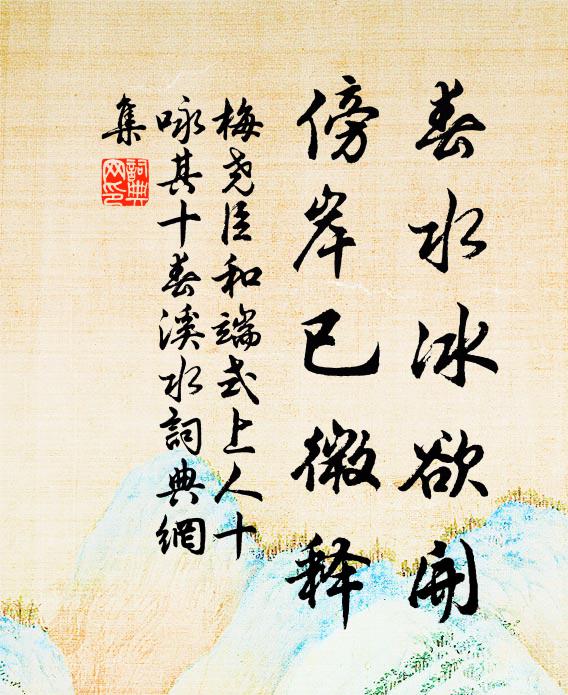 春水冰欲開
傍岸已微释
梅尧臣和端式上人十
咏其十春溪水詞典網
集
詞典
网印